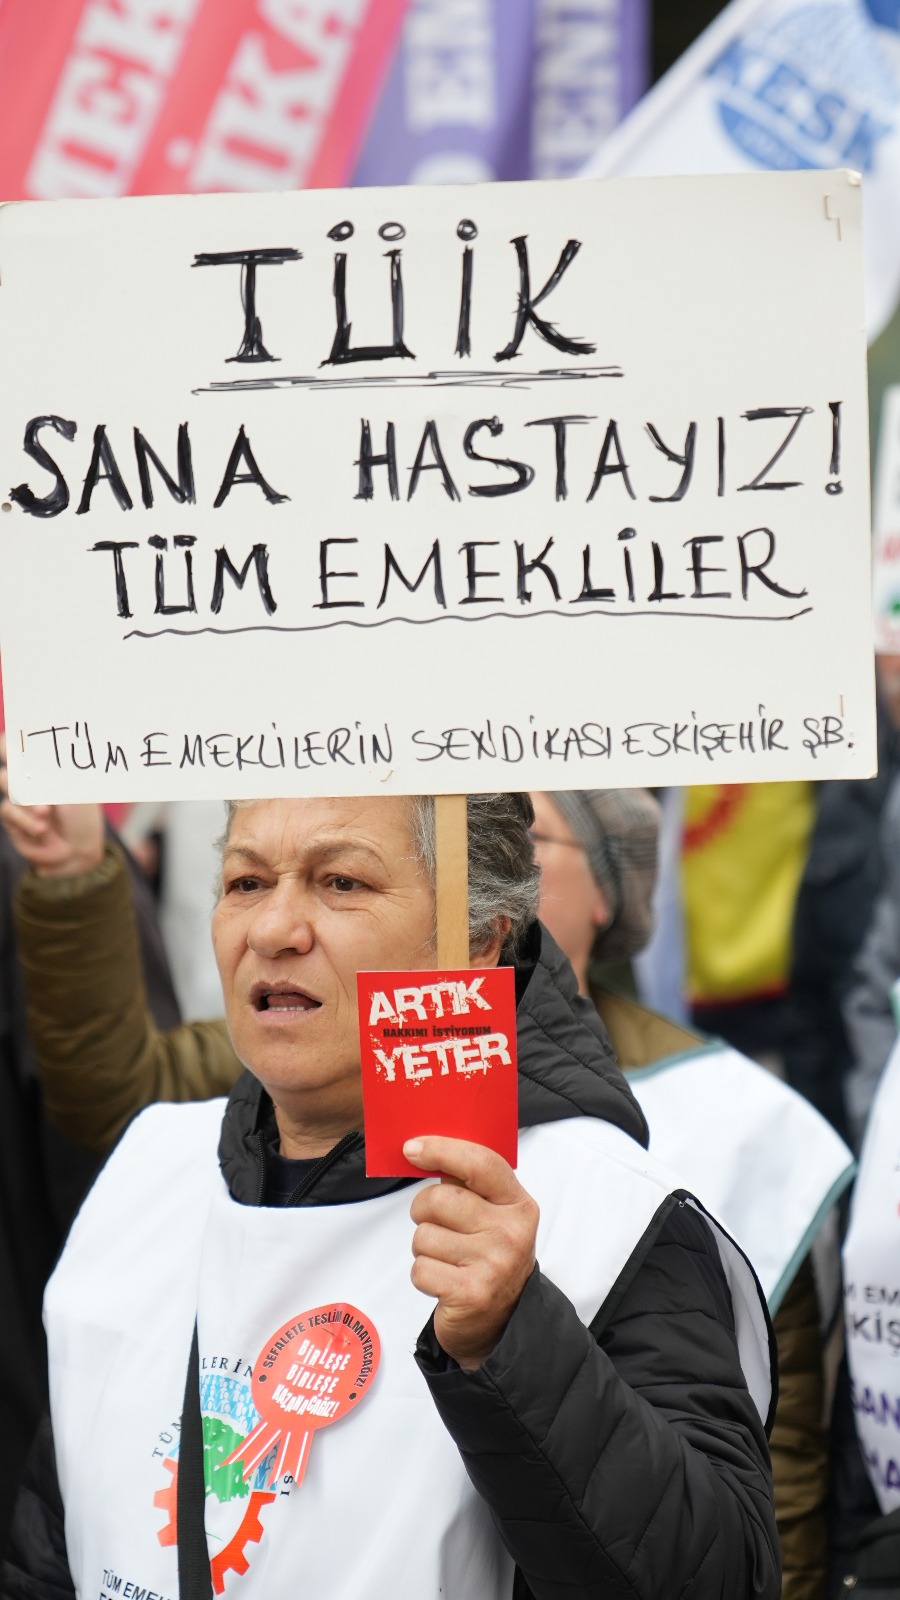 KESK
TÜİK
SANA HASTAYIZ!
TÜM EMEKLİLER
TÜM EMEKLİLERİN SENDİKASI ESKİŞEHİR ŞB.
ARTIK
HAKKIMI İSTİYORUM
YETER
SEFALETE TESLİM OLMAYACAĞIZ!
BİRLEŞE
BİRLEŞE
KAZANACAĞIZ!